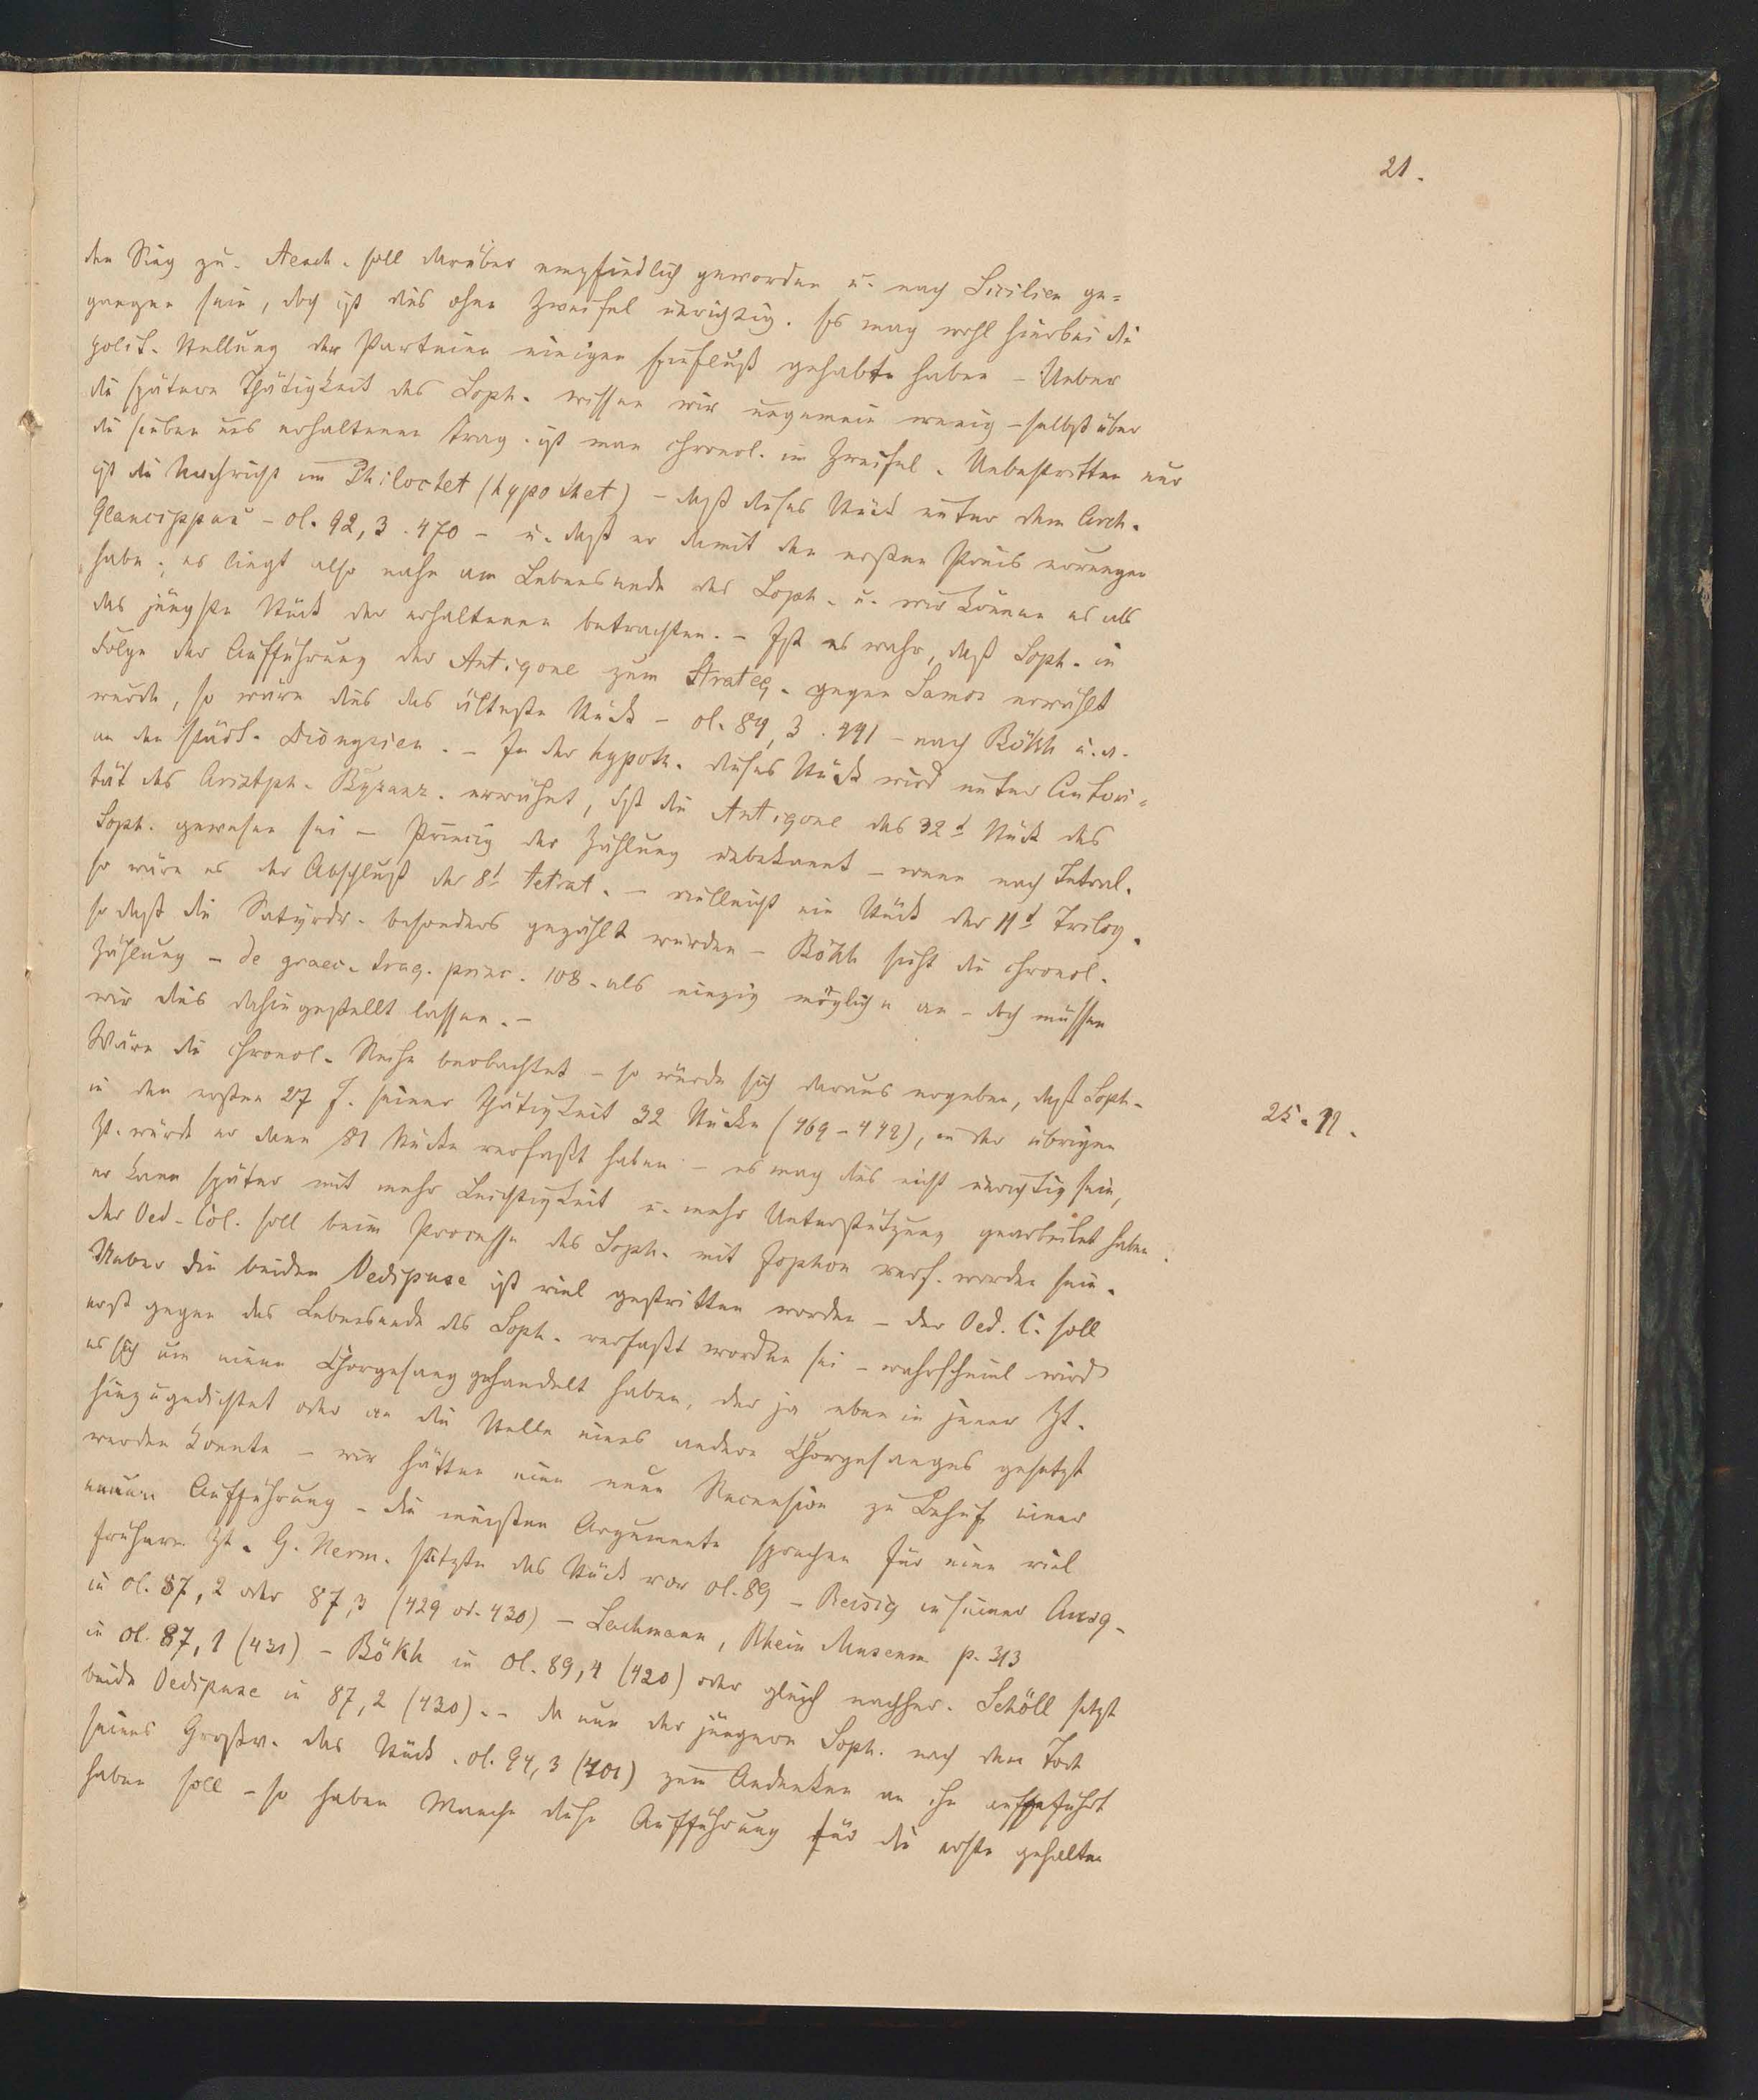 21.
den Sieg zu. Aesch. soll darüber empfindlich geworden u. nach Sicilien ge=
gangen sein, doch ist dies ohne Zweifel unrichtig. Es mag wohl hierbei die
polit. Stellung der Parteien einigen Einfluß gehabt haben – Ueber
die spätere Thätigkeit des Soph. wissen wir ungemein wenig – selbst über
die sieben uns erhaltenen Trag. ist man chronol. im Zweifel. Unbestritten nur
ist die Nachricht im Philoctet (hypothet) – daß dieses Stück unter dem Arch.
Glaucippus – Ol. 92, 3. 470 – u. daß er damit den ersten Preis errungen
habe; es liegt also nahe am Lebensende des Soph. u. wir können es als
das jüngste Stück der erhaltenen betrachten. – Ist es wahr, daß Soph. in
Folge der Aufführung der Antigone zum Strateg. gegen Samos erwählt
wurde, so wäre dies das älteste Stück – Ol. 84, 3. 441 – nach Bökh u. a.
an den städt. Dionysien. – In der hypoth. dieses Stück wird unter Autori=
tät des Aristph. Byzanz. erwähnt, daß die Antigone das 32t Stück des
Soph. gewesen sei – Princip der Zählung unbekannt – wenn nach Tetral.
so wäre es der Abschluß der 8t Tetrat. – vielleicht ein Stück der 11t Trilog.
so daß die Satyrdr. besonders gezählt wurden – Bökh sieht die chronol.
Zählung – de graec. trag. princ. 108. als einzig mögliche an – doch müssen
wir dies dahingestellt lassen. –
Wäre die chronol. Reihe beobachtet – so würde sich daraus ergeben, daß Soph.
in den ersten 27 J. seiner Thätigkeit 32 Stücke (469–442), in der übrigen
25. 11.
Zt. würde er dann 81 Stücke verfaßt haben – es mag dies nicht unrichtig sein,
er kann später mit mehr Leichtigkeit u. mehr Unterstützung gearbeitet haben.
der Oed. Col. soll beim Processe des Soph. mit Jophon verf. worden sein.
Ueber die beiden Oedipuse ist viel gestritten worden – der Oed. C. soll
erst gegen das Lebensende des Soph. verfaßt worden sei – wahrscheinl wird
es sich um einen Chorgesang gehandelt haben, der ja eben in jener Zt.
hinzugedichtet oder an die Stelle eines andern Chorgesanges gesetzt
werden konnte – wir hätten eine neue Recension zu Behuf einer
neuen Aufführung – die meisten Argumente sprechen für eine viel
frühere Zt. G. Herm. setzte das Stück vor Ol. 89 – Reisig in seiner Ausg.
in Ol. 87, 2 oder 87, 3 (429 od. 430) – Lachmann, Rhein Museum p. 313
in Ol. 87, 1 (431) – Bökh in Ol. 89, 4 (420) oder gleich nachher. Schöll setzt
beide Oedipuse in 87, 2 (430). – da nun der jüngere Soph. nach dem Tode
seines Großv. das Stück. Ol. 94, 3 (401) zum Andenken an ihn aufgeführt
haben soll – so haben Manche diese Aufführung für die erste gehalten